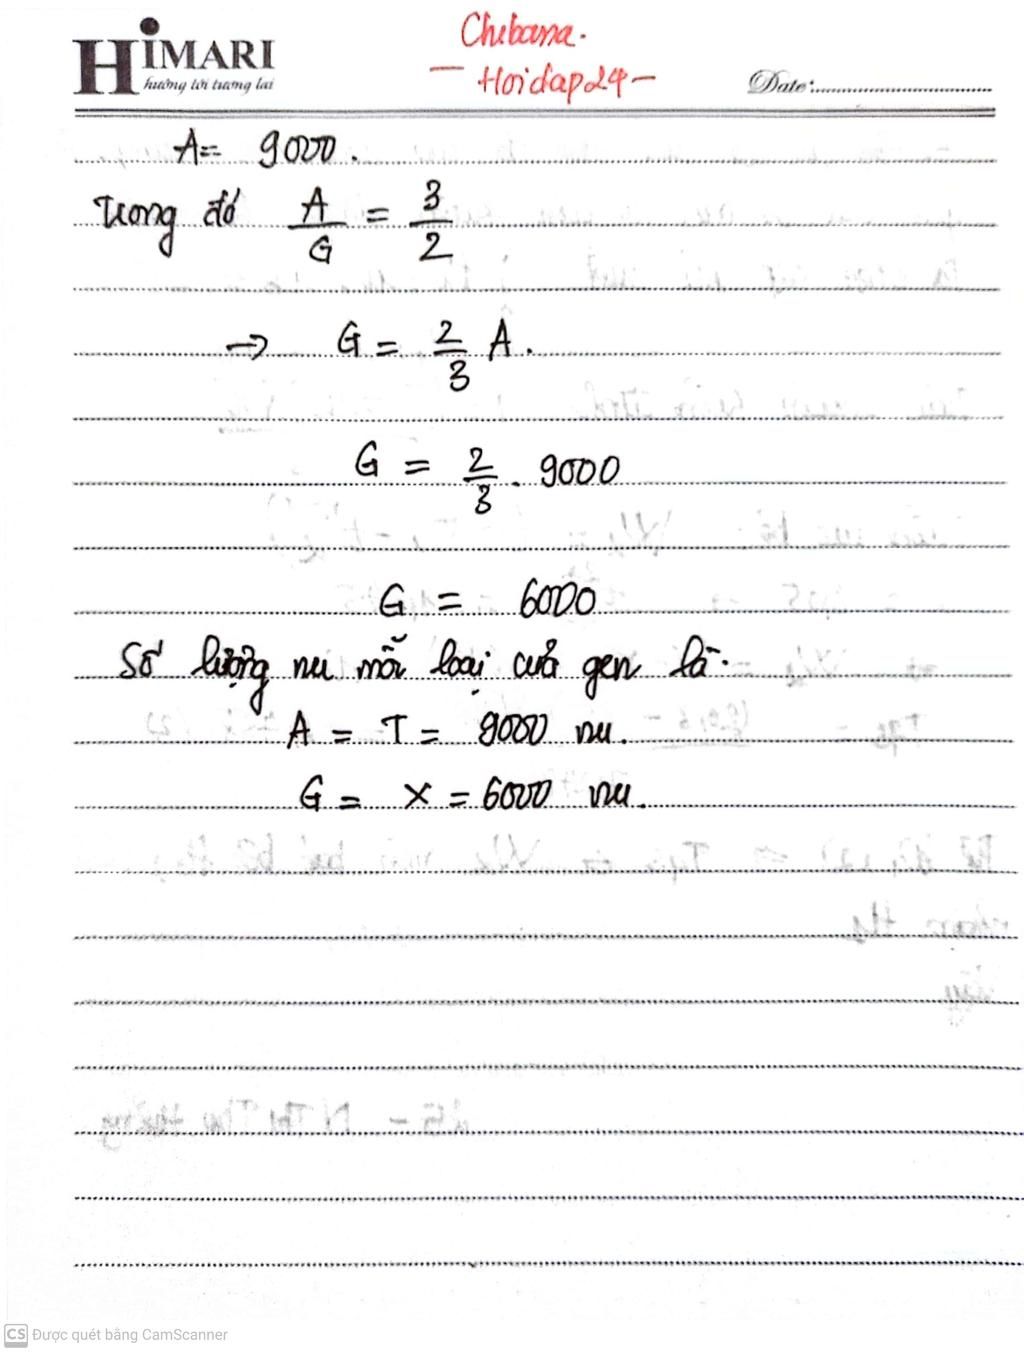 HIMARI
hướng tới tương lai
Chibana.
- Hoidap24 -
Date:
A = 9000.
trong đó A/G = 3/2
→ G = 2/3 A.
G = 2/3 . 9000
G = 6000
Số lượng nu mỗi loại của gen là:
A = T = 9000 nu.
G = X = 6000 nu.
CS Được quét bằng CamScanner